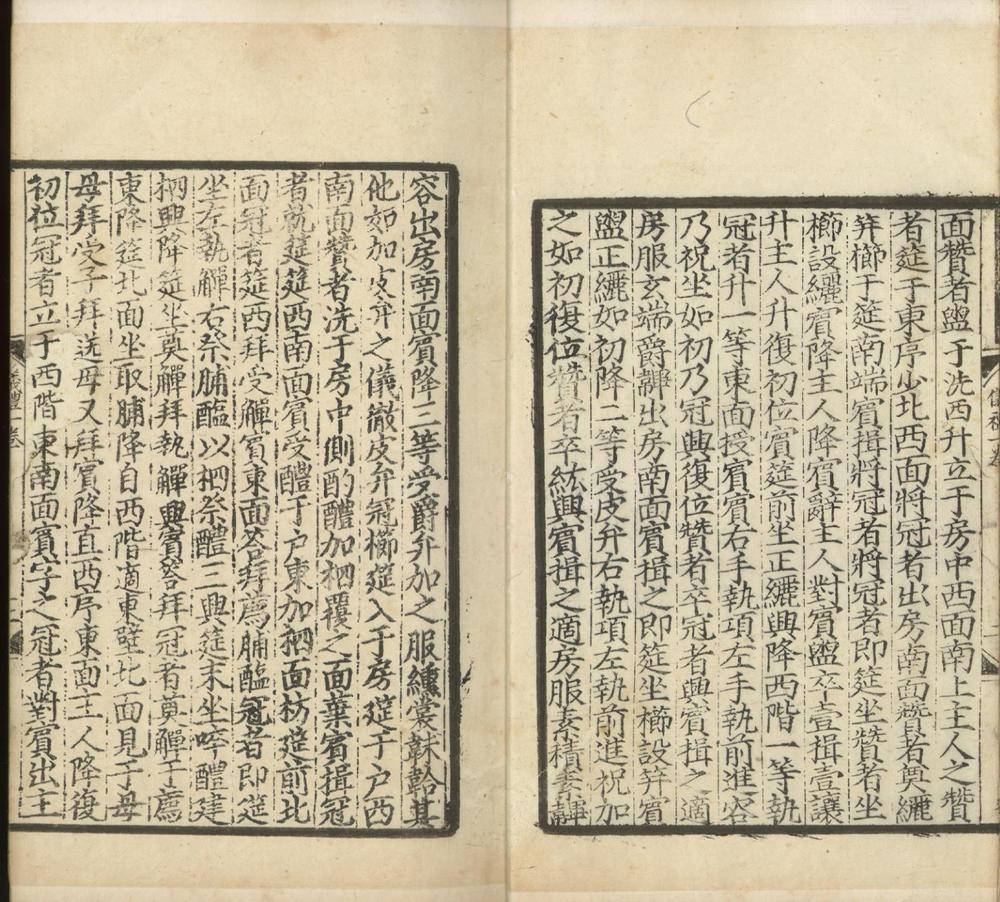 面贊者盥于洗西升立于房中西面南上主人之贊
者筵于東序少北西面將冠者出房南面贊者奠纚
笄櫛于筵南端賓揖將冠者將冠者即筵坐贊者坐
櫛設纚賓降主人降賓辭主人對賓盥卒壹揖壹讓
升主人升復初位賓筵前坐正纚興降西階一等執
冠者升一等東面授賓賓右手執項左手執前進容
乃祝坐如初乃冠興復位贊者卒冠者興賓揖之適
房服玄端爵韠出房南面賓揖之即筵坐櫛設笄賓
盥正纚如初降二等受皮弁右執項左執前進祝加
之如初復位贊者卒紘興賓揖之適房服素積素韠
容出房南面賓降三等受爵弁加之服纁裳韎韐其
他如加皮弁之儀徹皮弁冠櫛筵入于房筵于户西
南面贊者洗于房中側酌醴加柶覆之面葉賓揖冠
者就筵筵西南面賓受醴于户東加柶面枋筵前北
面冠者筵西拜受觶賓東面荅拜薦脯醢冠者即筵
坐左執觶右祭脯醢以柶祭醴三興筵末坐啐醴建
柶興降筵坐奠觶拜執觶興賓答拜冠者奠觶于薦
東降筵北面坐取脯降自西階適東壁北面見于母
母拜受子拜送母又拜賓降直西序東面主人降復
初位冠者立于西階東南面賓字之冠者對賓出主